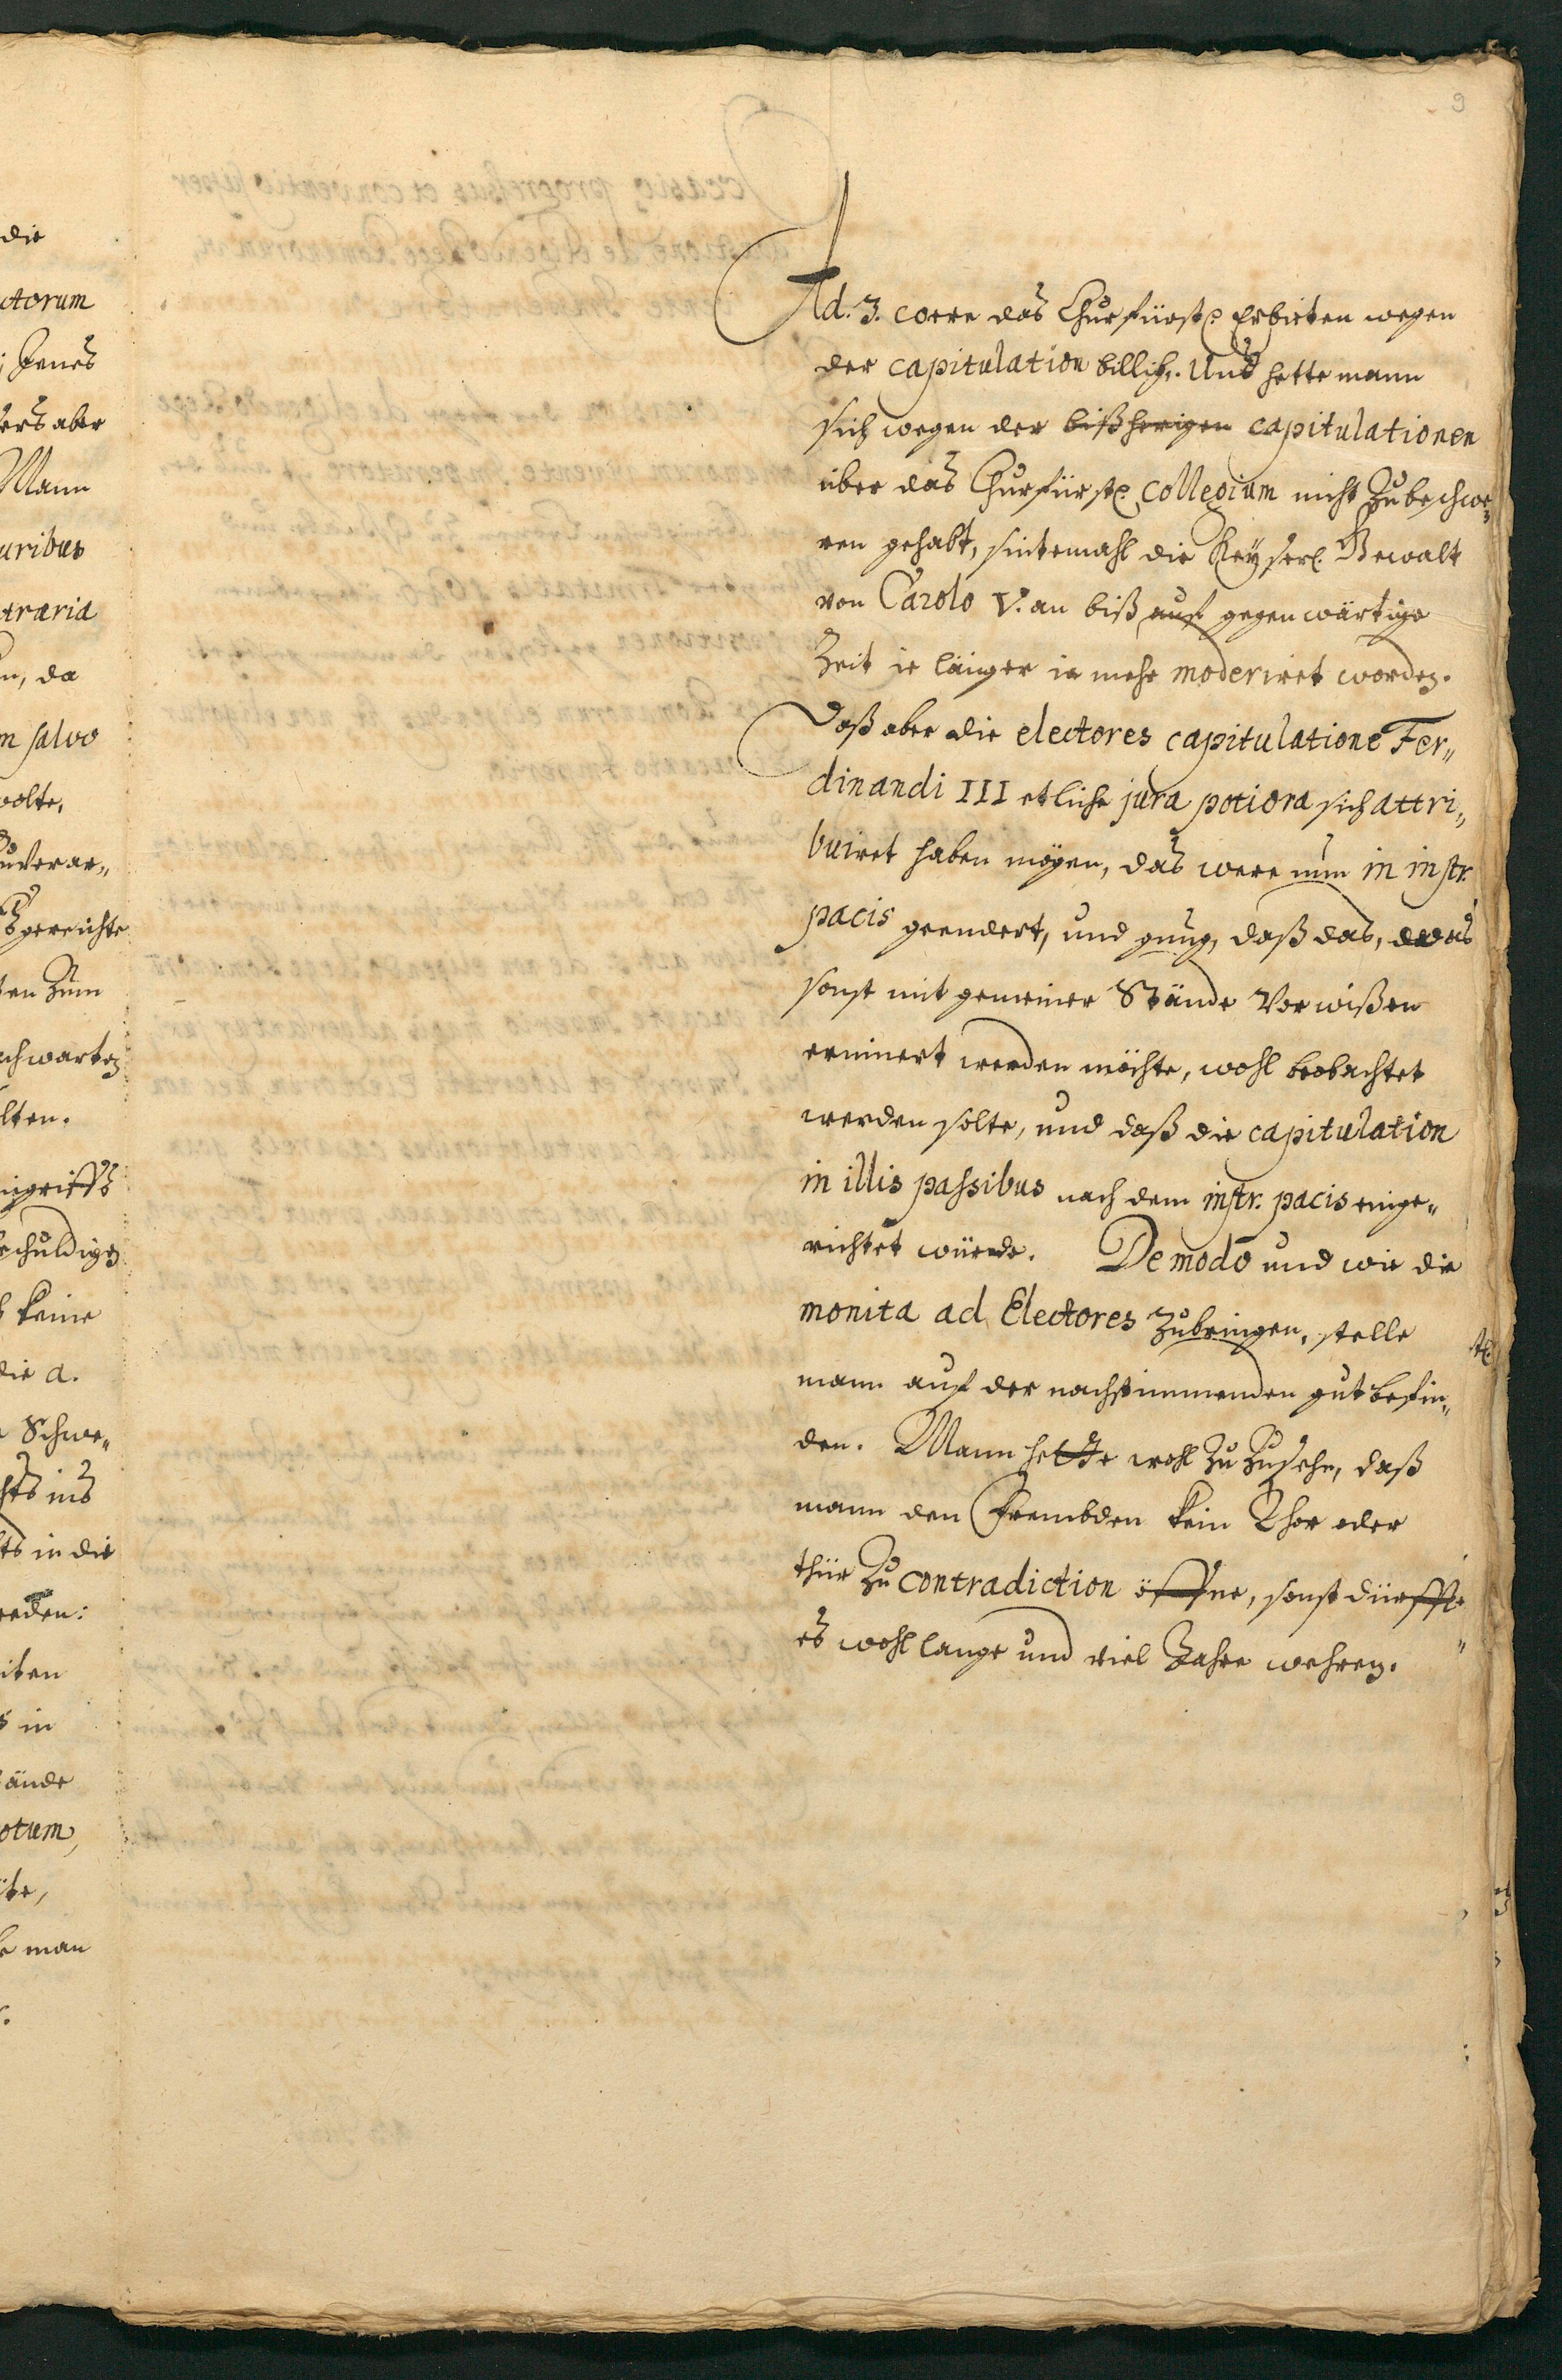 9
Ad. 3. were das Churfürstl. Erbieten wegen
der capitulation billich,. Und hette mann
sich wegen der bißherigen capitulationen
über das Churfürstl. Collegium nicht zubeschwe„
ren gehabt, sintemahl die Keyserl. Gewalt
von Carolo V. an biß auf gegenwärtige
Zeit ie länger ie mehr moderiret worden.
Daß aber die electores capitulatione Fer„
dinandi III etliche jura potiora sich attri„
buiret haben mögen, das were nun in instr.
pacis geendert, und gnug, daß das, was
sonst mit gemeiner Stände Vorwißen
erinnert werden möchte, wohl beobachtet
werden solte, und daß die capitulation
in illis passibus nach dem instr. pacis einge„
richtet würde. De modo und wie die
monita ad Electores zubringen, stelle
mann auf der nachstimmenden gutbefin„
den. Mann hette wohl zu zusehn, daß
mann den Frembden kein Thor oder
thür zu contradiction öffne, sonst dürffte
es wohl lange und viel Jahre wehren.
die
ctorum
Jenes
ers aber
Mann
uribus
traria
n, da
m salvo
wolte,
zuverar„
gereichte
ten zum
achwarten
lten.
ingriffs
schuldigen
keine
die a.
Schwe„
hts ins
ts in die
eden:
iten
s in
ände
otum,
te,
e man